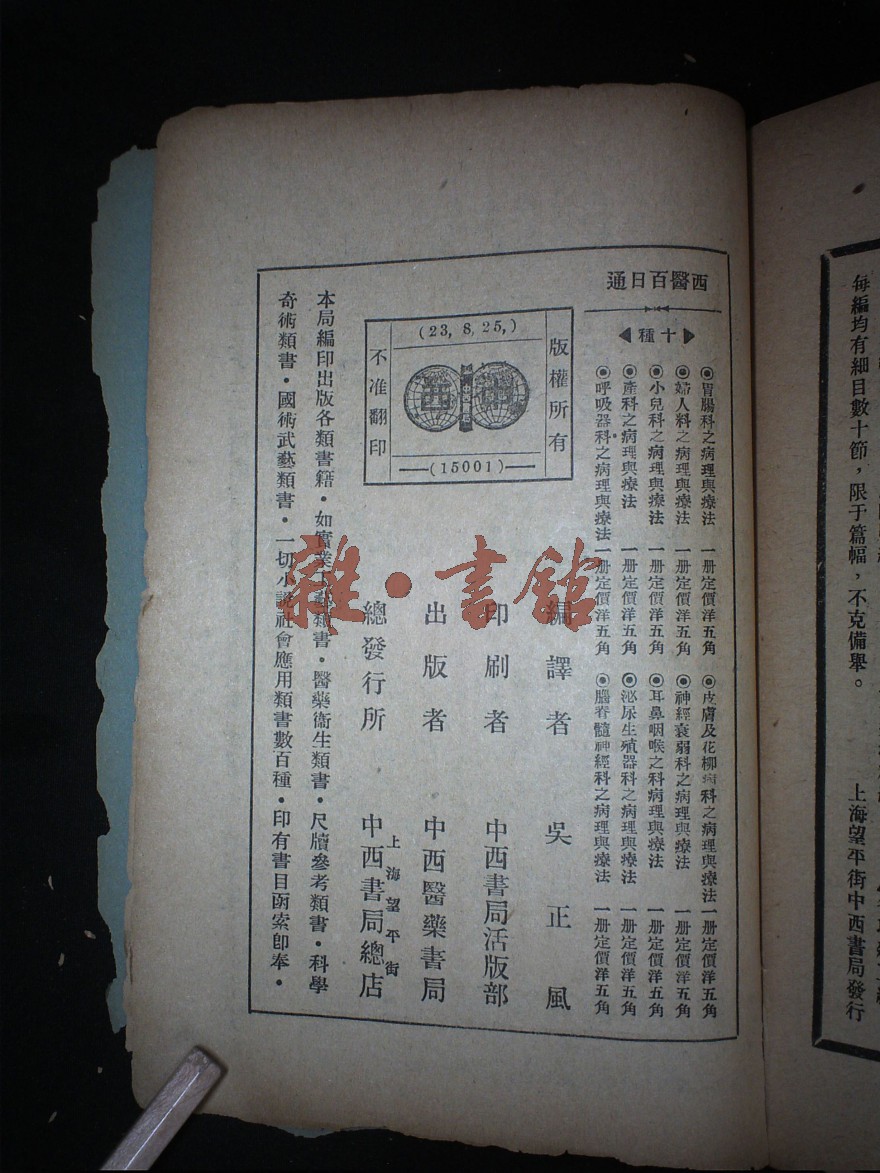 每編均有細目數十節，限于篇幅，不克備舉。
上海望平街中西書局發行
西醫百日通
十種
◉胃腸科之病理與療法 一册定價洋五角
◉婦人科之病理與療法 一册定價洋五角
◉小兒科之病理與療法 一册定價洋五角
◉產科之病理與療法 一册定價洋五角
◉呼吸器科之病理與療法 一册定價洋五角
◉皮膚及花柳病科之病理與療法 一册定價洋五角
◉神經衰弱科之病理與療法 一册定價洋五角
◉耳鼻咽喉之科病理與療法 一册定價洋五角
◉泌尿生殖器科之病理與療法 一册定價洋五角
◉腦脊髓神經科之病理與療法 一册定價洋五角
版權所有
(23, 8, 25,)
中西
(15001)
不准翻印
編譯者 吳正風
印刷者 中西書局活版部
出版者 中西醫藥書局
總發行所 上海望平街 中西書局總店
本局編印出版各類書籍・如實業工藝類書・醫藥衞生類書・尺牘參考類書・科學
奇術類書・國術武藝類書・一切小說社會應用類書數百種・印有書目函索卽奉・
雜・書館